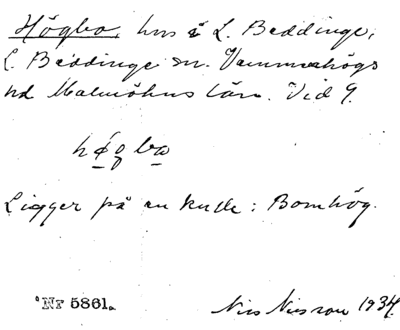 Högbo, hus i L. Beddinge,
L. Beddinge sn. Vemmenhögs
hd Malmöhus län. Vid 9.
høgba
Ligger på en kulle: Bomhög.
Nr 5861.
Nils Nilsson 1934.